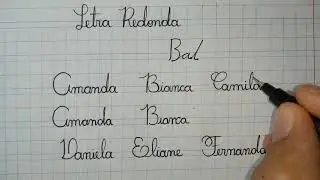 Letra Redonda
Bal
Amanda Bianca Camila
Amanda Bianca
Daniela Eliane Fernanda